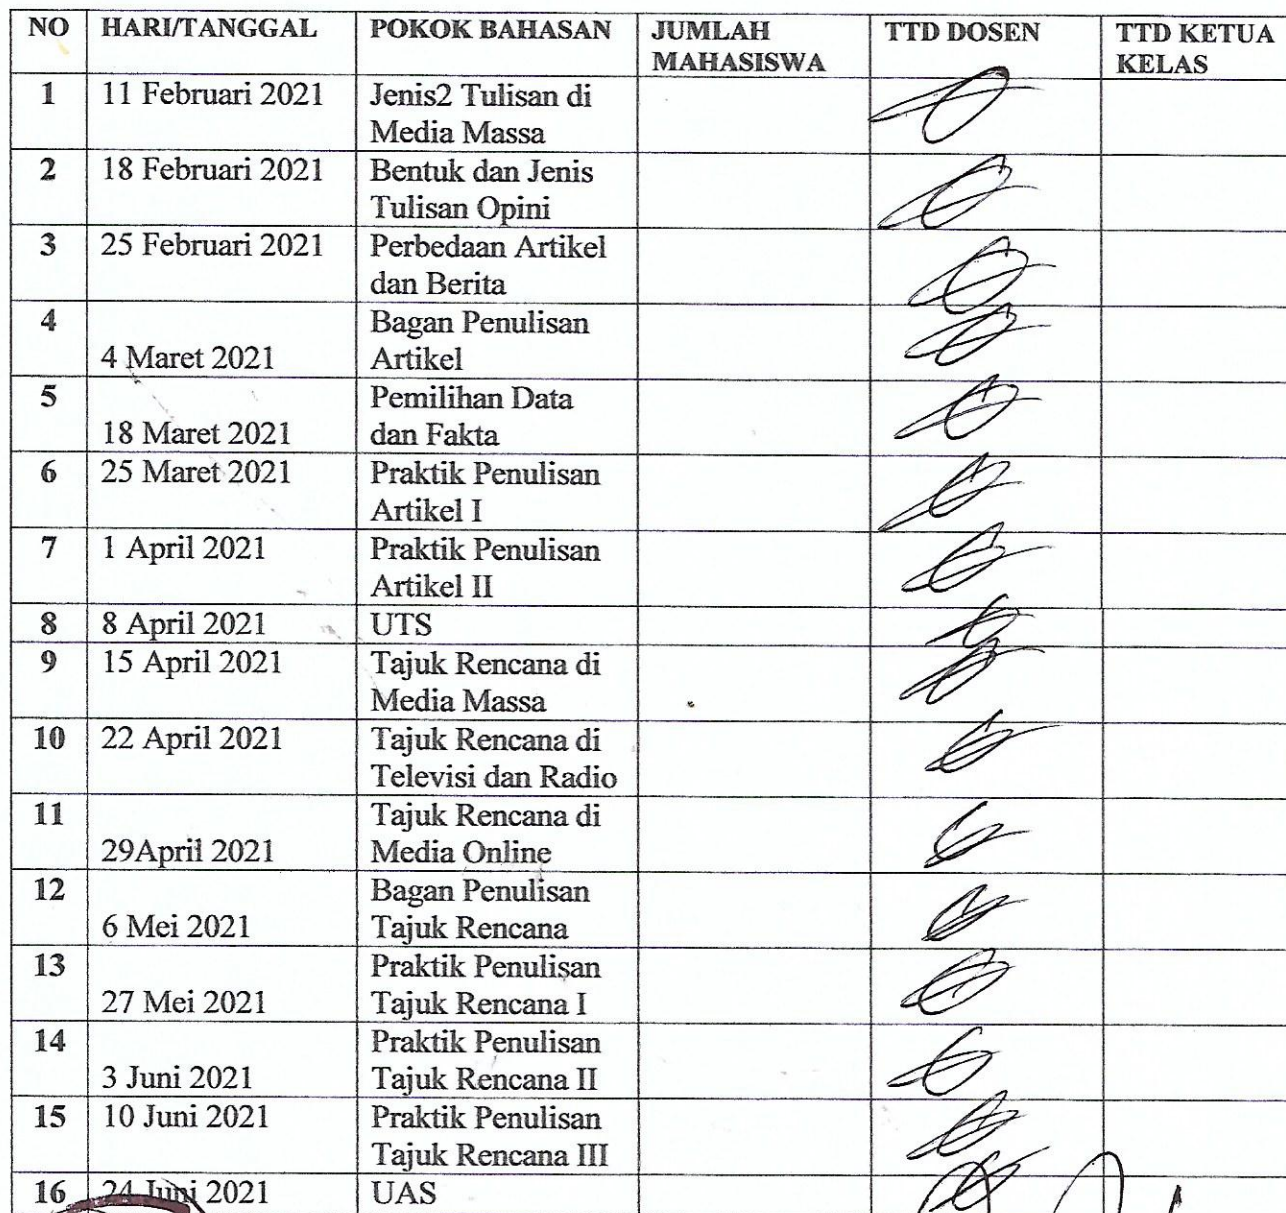 NO HARI/TANGGAL POKOK BAHASAN JUMLAH MAHASISWA TTD DOSEN TTD KETUA KELAS
1 11 Februari 2021 Jenis2 Tulisan di
Media Massa
2 18 Februari 2021 Bentuk dan Jenis
Tulisan Opini
3 25 Februari 2021 Perbedaan Artikel
dan Berita
4 Bagan Penulisan
4 Maret 2021 Artikel
5 Pemilihan Data
18 Maret 2021 dan Fakta
6 25 Maret 2021 Praktik Penulisan
Artikel I
7 1 April 2021 Praktik Penulisan
Artikel II
8 8 April 2021 UTS
9 15 April 2021 Tajuk Rencana di
Media Massa
10 22 April 2021 Tajuk Rencana di
Televisi dan Radio
11 Tajuk Rencana di
29April 2021 Media Online
12 Bagan Penulisan
6 Mei 2021 Tajuk Rencana
13 Praktik Penulisan
27 Mei 2021 Tajuk Rencana I
14 Praktik Penulisan
3 Juni 2021 Tajuk Rencana II
15 10 Juni 2021 Praktik Penulisan
Tajuk Rencana III
16 24 Juni 2021 UAS